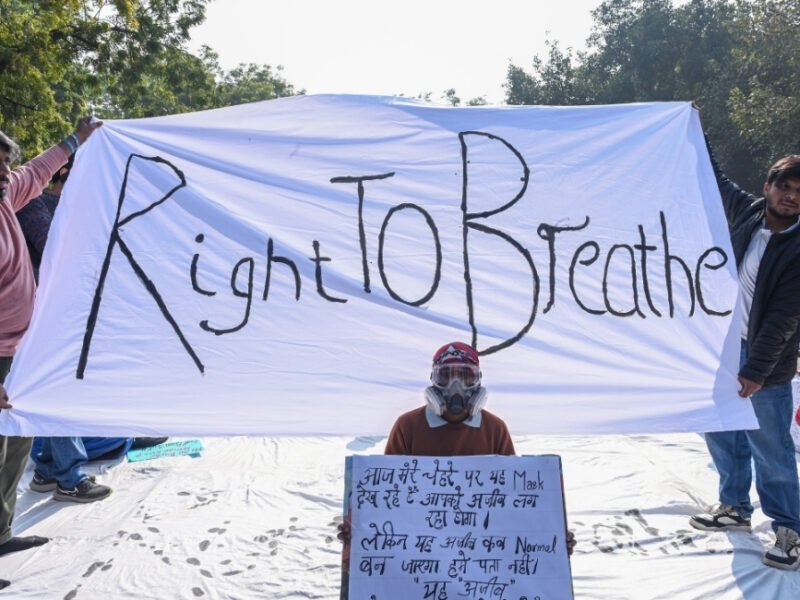 Right To Breathe
आज मेरे चेहरे पर यह Mask
देख रहे हैं आपको अजीब लग
रहा होगा।
लेकिन यह अजीब कब Normal
बन जाएगा हमे पता नहीं।
"यह "अजीब"